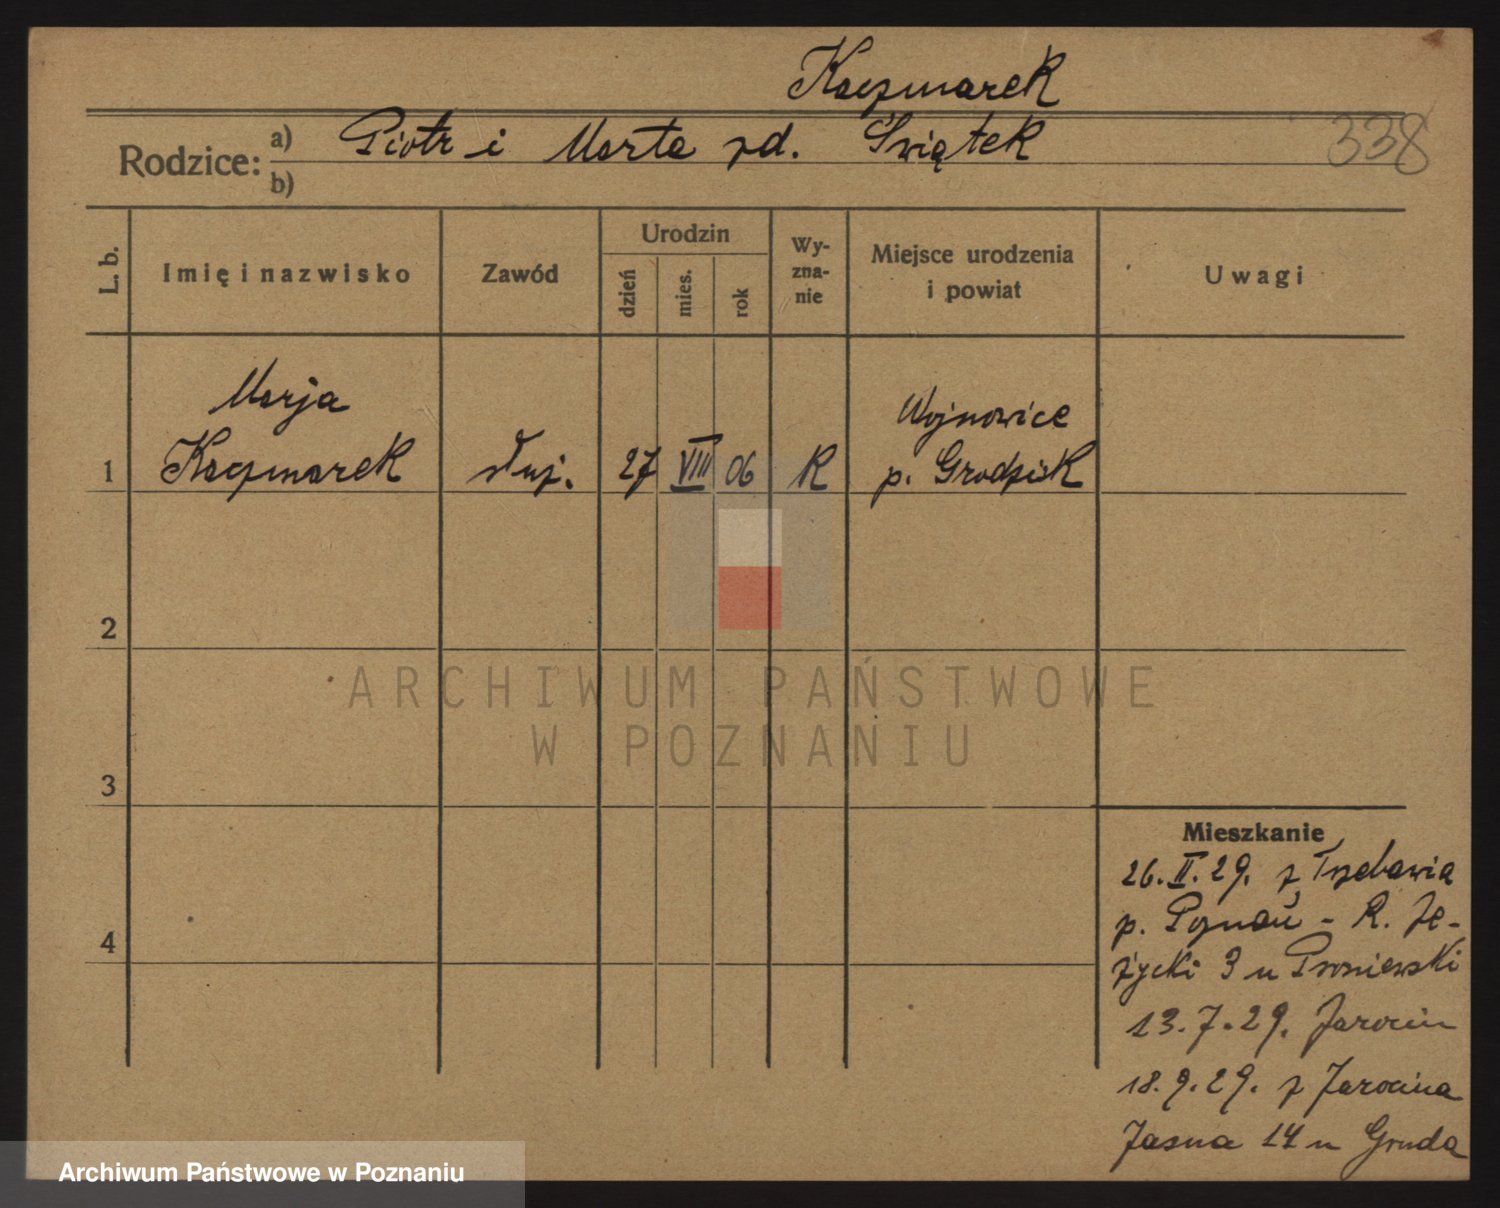 Kaczmarek
Rodzice: a) Piotr i Marta zd. Świątek
b)
338
L. b.
Imię i nazwisko
Zawód
Urodzin
dzień
mies.
rok
Wy-
zna-
nie
Miejsce urodzenia
i powiat
Uwagi
Marja
Kaczmarek
Wojnowice
1
służ.
27 VIII 06
R
p. Grodzisk
2
3
4
ARCHIWUM PAŃSTWOWE
W POZNANIU
Mieszkanie
26.II.29. z Trzebawia
p. Poznań - R. Je-
życki 3 u
13.7.29. Jarocin
18.9.29. z Jarocina
Jasna 14 u Gruda
Archiwum Państwowe w Poznaniu